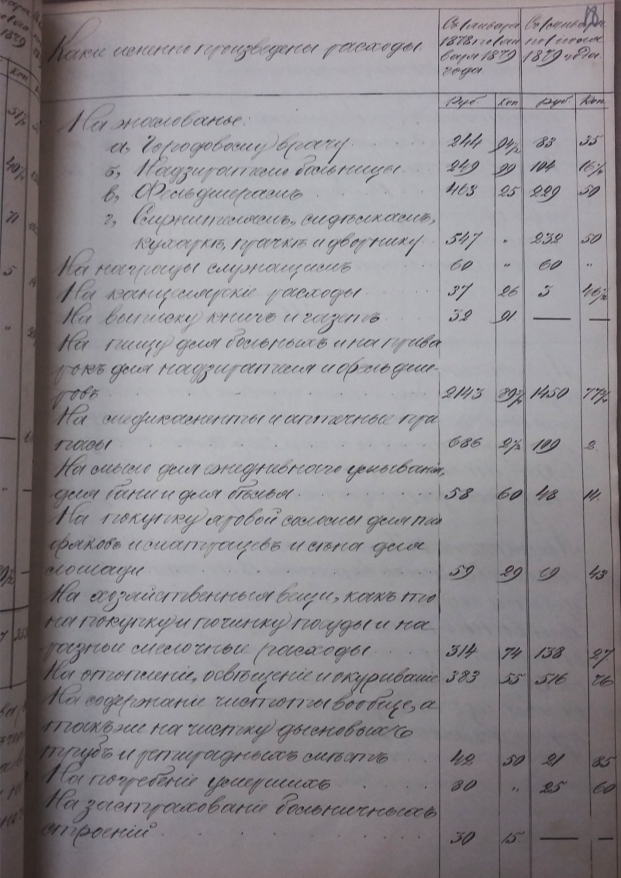 Какъ именно произведены расходы
Съ января 1878 по января 1879 года
Съ января по 1879 года
18
Руб. Коп. Руб. Коп.
На жалованье:
а, Городовому врачу 244 94½ 83 35
б, Надзирателю больницы 249 99 104 16½
в, Фельдшерамъ 463 25 229 50
г, Служителямъ, сидѣлкамъ,
кухаркѣ, прачкѣ и дворнику 547 „ 232 50
На награды служащимъ 60 „ 60 „
На канцелярскіе расходы 37 26 3 46½
На выписку книгъ и газетъ 32 91 — —
На пищу для больныхъ и на прива
рокъ для надзирателя и фельдше-
ровъ 2143 89½ 1450 77½
На медикаменты и аптечные при
пасы 686 2½ 199 2
На мыло для ежедневнаго умыванія,
для бани и для бѣлья 58 60 48 14
На покупку яровой соломы для тю
фяковъ и матрацевъ и сѣна для
лошади 59 29 69 43
На хозяйственныя вещи, какъ то
на покупку и починку посуды и на
разные мелочные расходы 314 74 138 27
На отопленіе, освѣщеніе и окуриваніе 383 55 516 76
На содержаніе чистоты вообще, а
также на чистку дымовыхъ
трубъ и ретирадныхъ мѣстъ 42 50 21 85
На погребеніе умершихъ 30 „ 25 60
На застрахованіе больничныхъ
строеній 30 15 — —